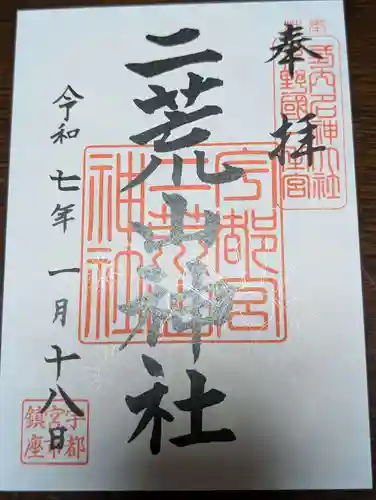 奉拝
二荒山神社
令和七年一月十八日
宇都宮
二荒山
神社
宇都
宮市
鎮座